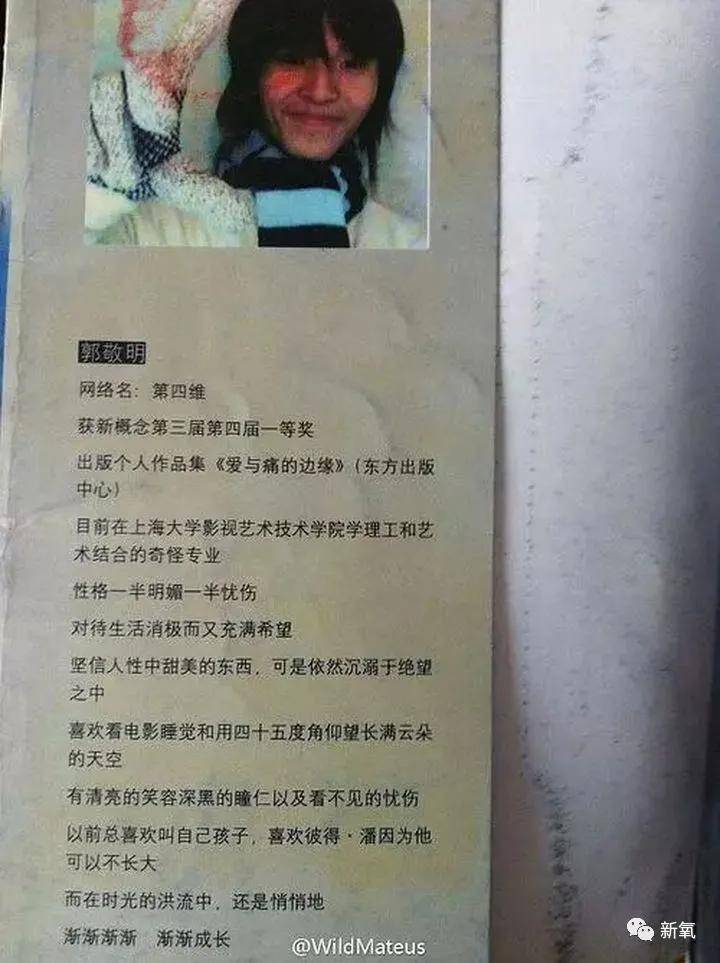 郭敬明
网络名：第四维
获新概念第三届第四届一等奖
出版个人作品集《爱与痛的边缘》（东方出版
中心）
目前在上海大学影视艺术技术学院学理工和艺
术结合的奇怪专业
性格一半明媚一半忧伤
对待生活消极而又充满希望
坚信人性中甜美的东西，可是依然沉溺于绝望
之中
喜欢看电影睡觉和用四十五度角仰望长满云朵
的天空
有清亮的笑容深黑的瞳仁以及看不见的忧伤
以前总喜欢叫自己孩子，喜欢彼得·潘因为他
可以不长大
而在时光的洪流中，还是悄悄地
渐渐渐渐　渐渐成长
@WildMateus
新氧